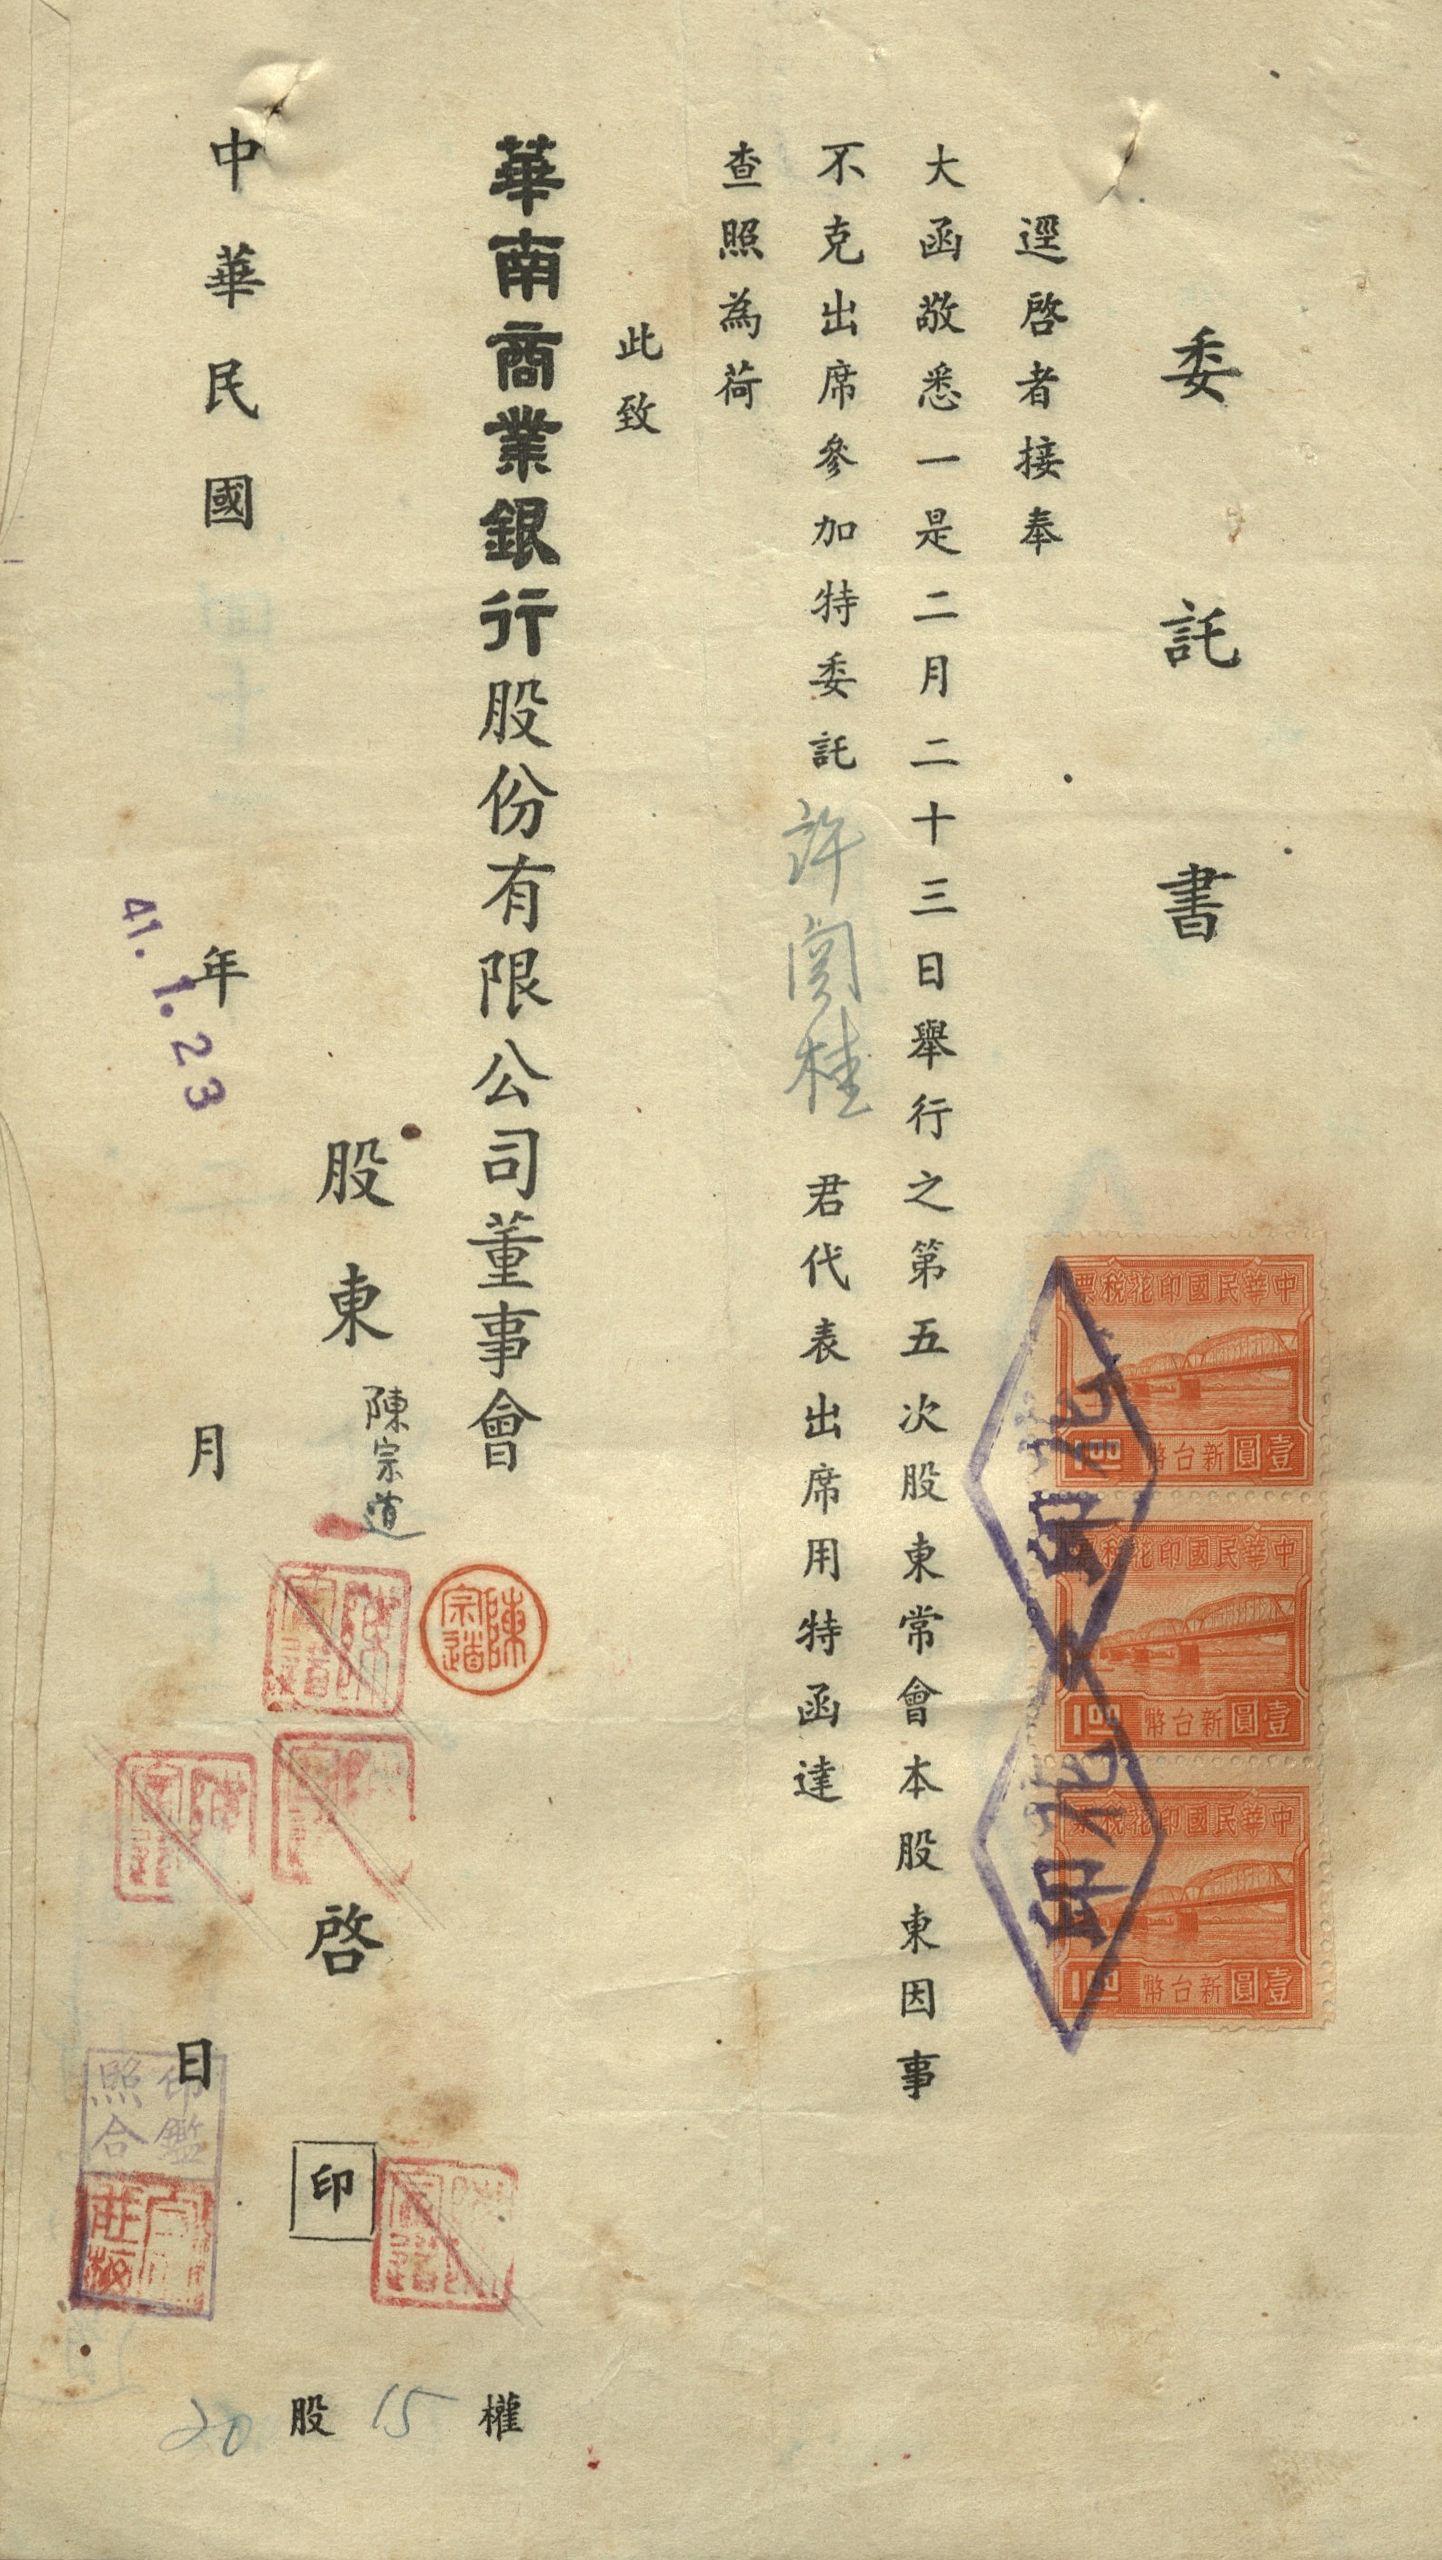 委託書
逕啓者接奉
大函敬悉一是二月二十三日舉行之第五次股東常會本股東因事
不克出席參加特委託許 桂 君代表出席用特函達
查照為荷
此致
華南商業銀行股份有限公司董事會
股東 陳宗道 啓 印
陳宗道
中華民國 年 月 日
41.1.23
20 股 15 權
印鑑
照合
中華民國印花稅票
壹圓 新台幣 1.00
中華民國印花稅票
壹圓 新台幣 1.00
中華民國印花稅票
壹圓 新台幣 1.00